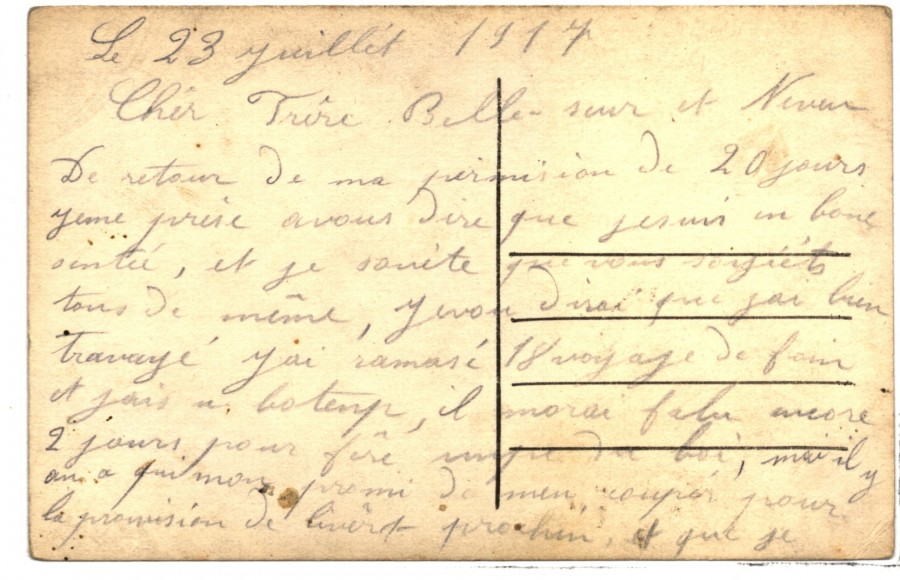 Le 23 juillét 1917
Chêr Frêre Belle-seur et Neveu
De retour de ma permision de 20 jours
yeme prése avous dire que jesuis en bone
sintée, et je souète que vous soyéits
tous de même, yevou dirai que jai bien
travayé yai ramasé 18 voyage de foin
et jais u botemp, il morai falu encore
2 jours pour fêre unpe du boi, mai il y
an a qui mon promi de men coupér pour
la provision de livêrt prochin, et que je